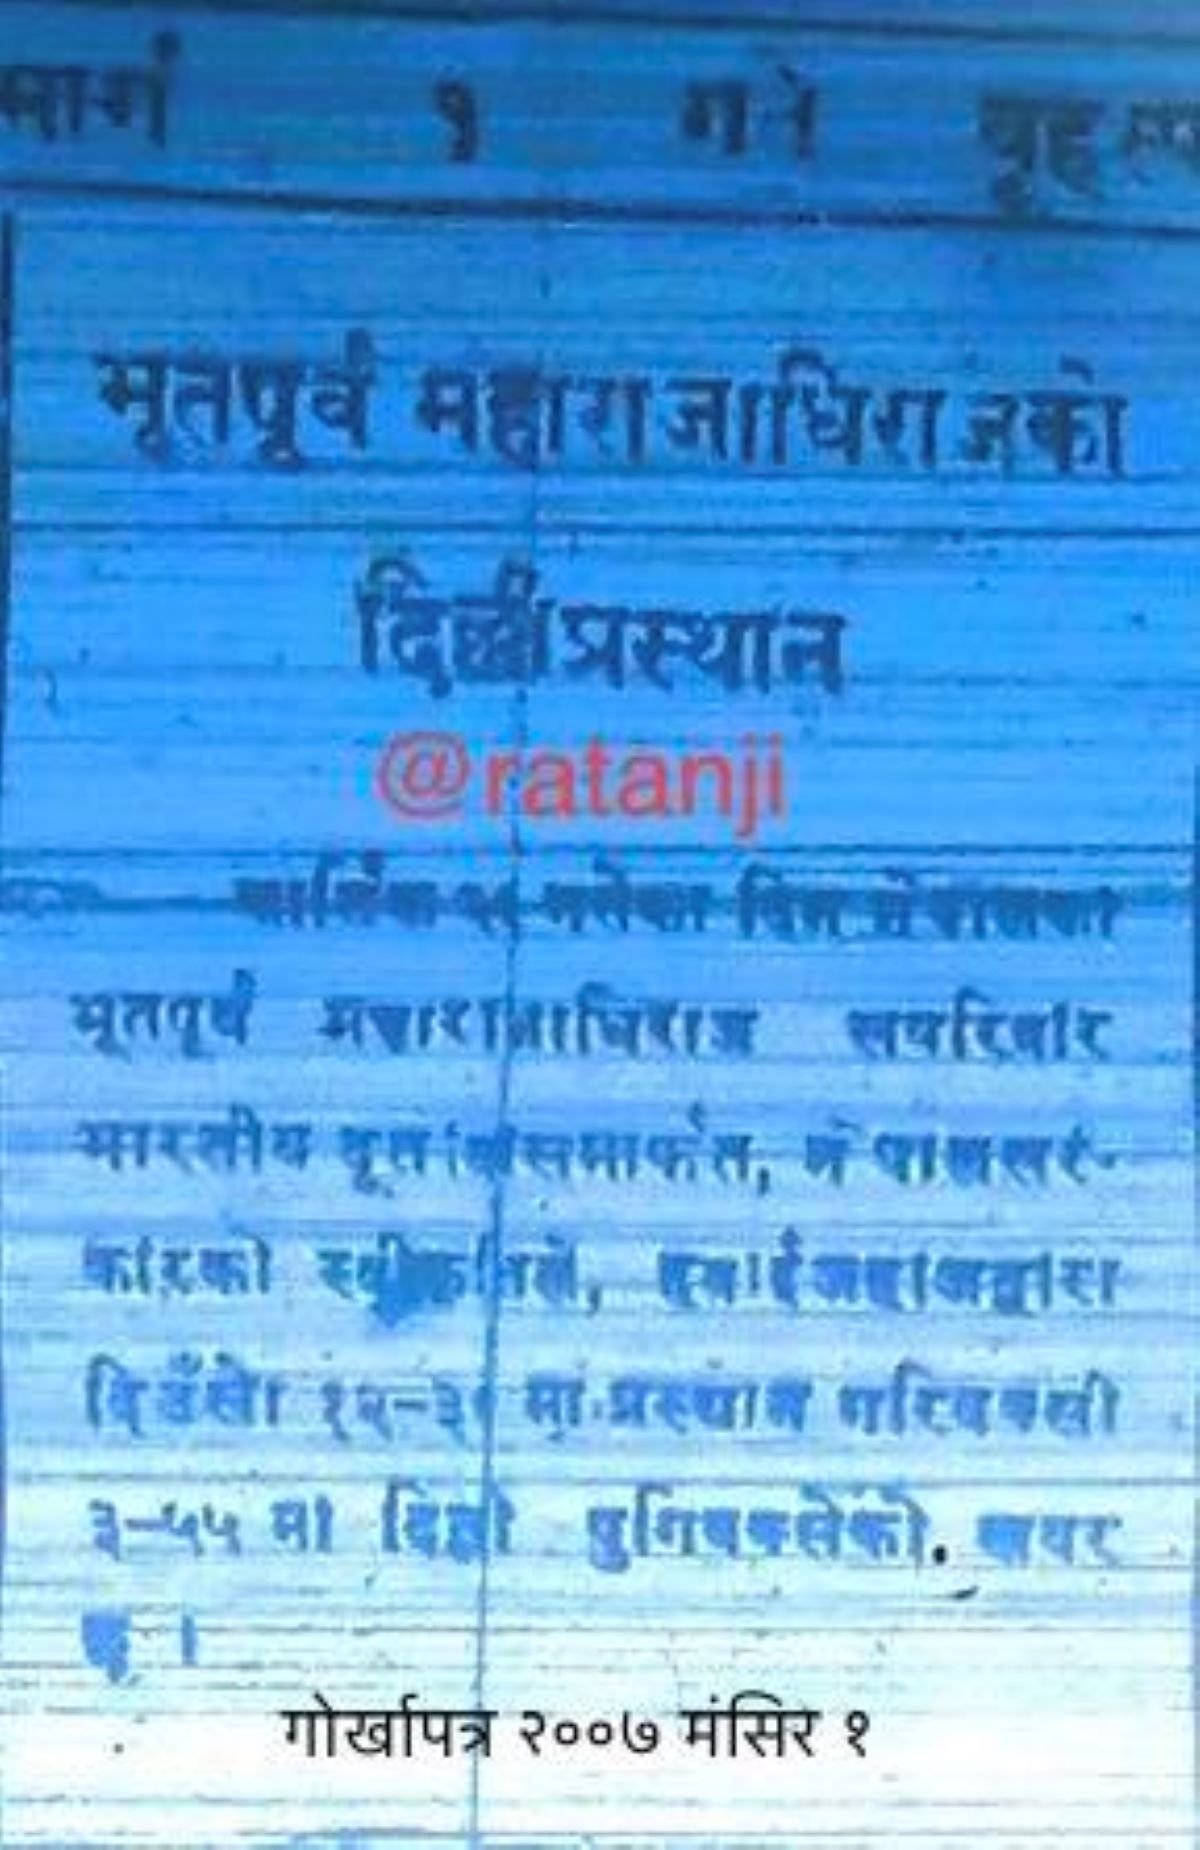 मार्ग १ गते
भूतपूर्व महाराजाधिराजको
दिल्लीप्रस्थान
@ratanji
गतेका दिन नेपालका
भूतपूर्व महाराजाधिराज सपरिवार
भारतीय मार्फत, नेपालसर-
कारको स्वीकृतिले, हवाईजहाजद्वारा
दिउँसो मा प्रस्थान गरिबक्सी
३-५५ मा दिल्ली पुगिबक्सेको खबर
छ ।
गोर्खापत्र २००७ मंसिर १